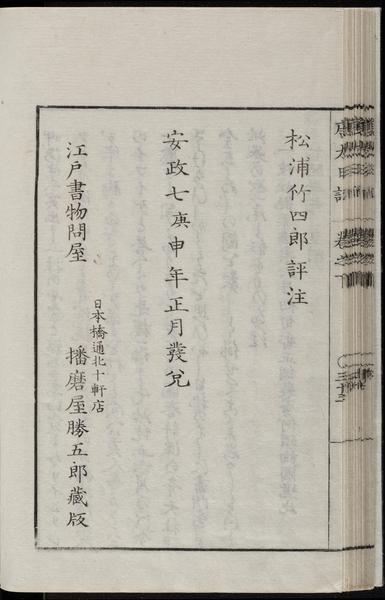 松浦竹四郎評注
安政七庚申年正月發兌
江戸書物問屋
日本橋通北十軒店
播磨屋勝五郎藏版